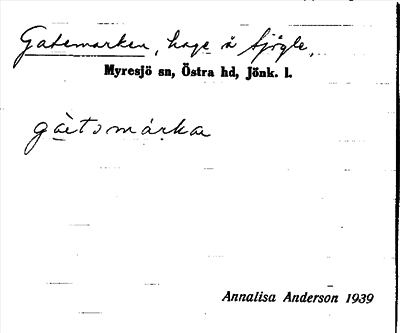 Gatemarken, hage å Sjögle,
Myresjö sn, Östra hd, Jönk. l.
gàetomárka
Annalisa Anderson 1939